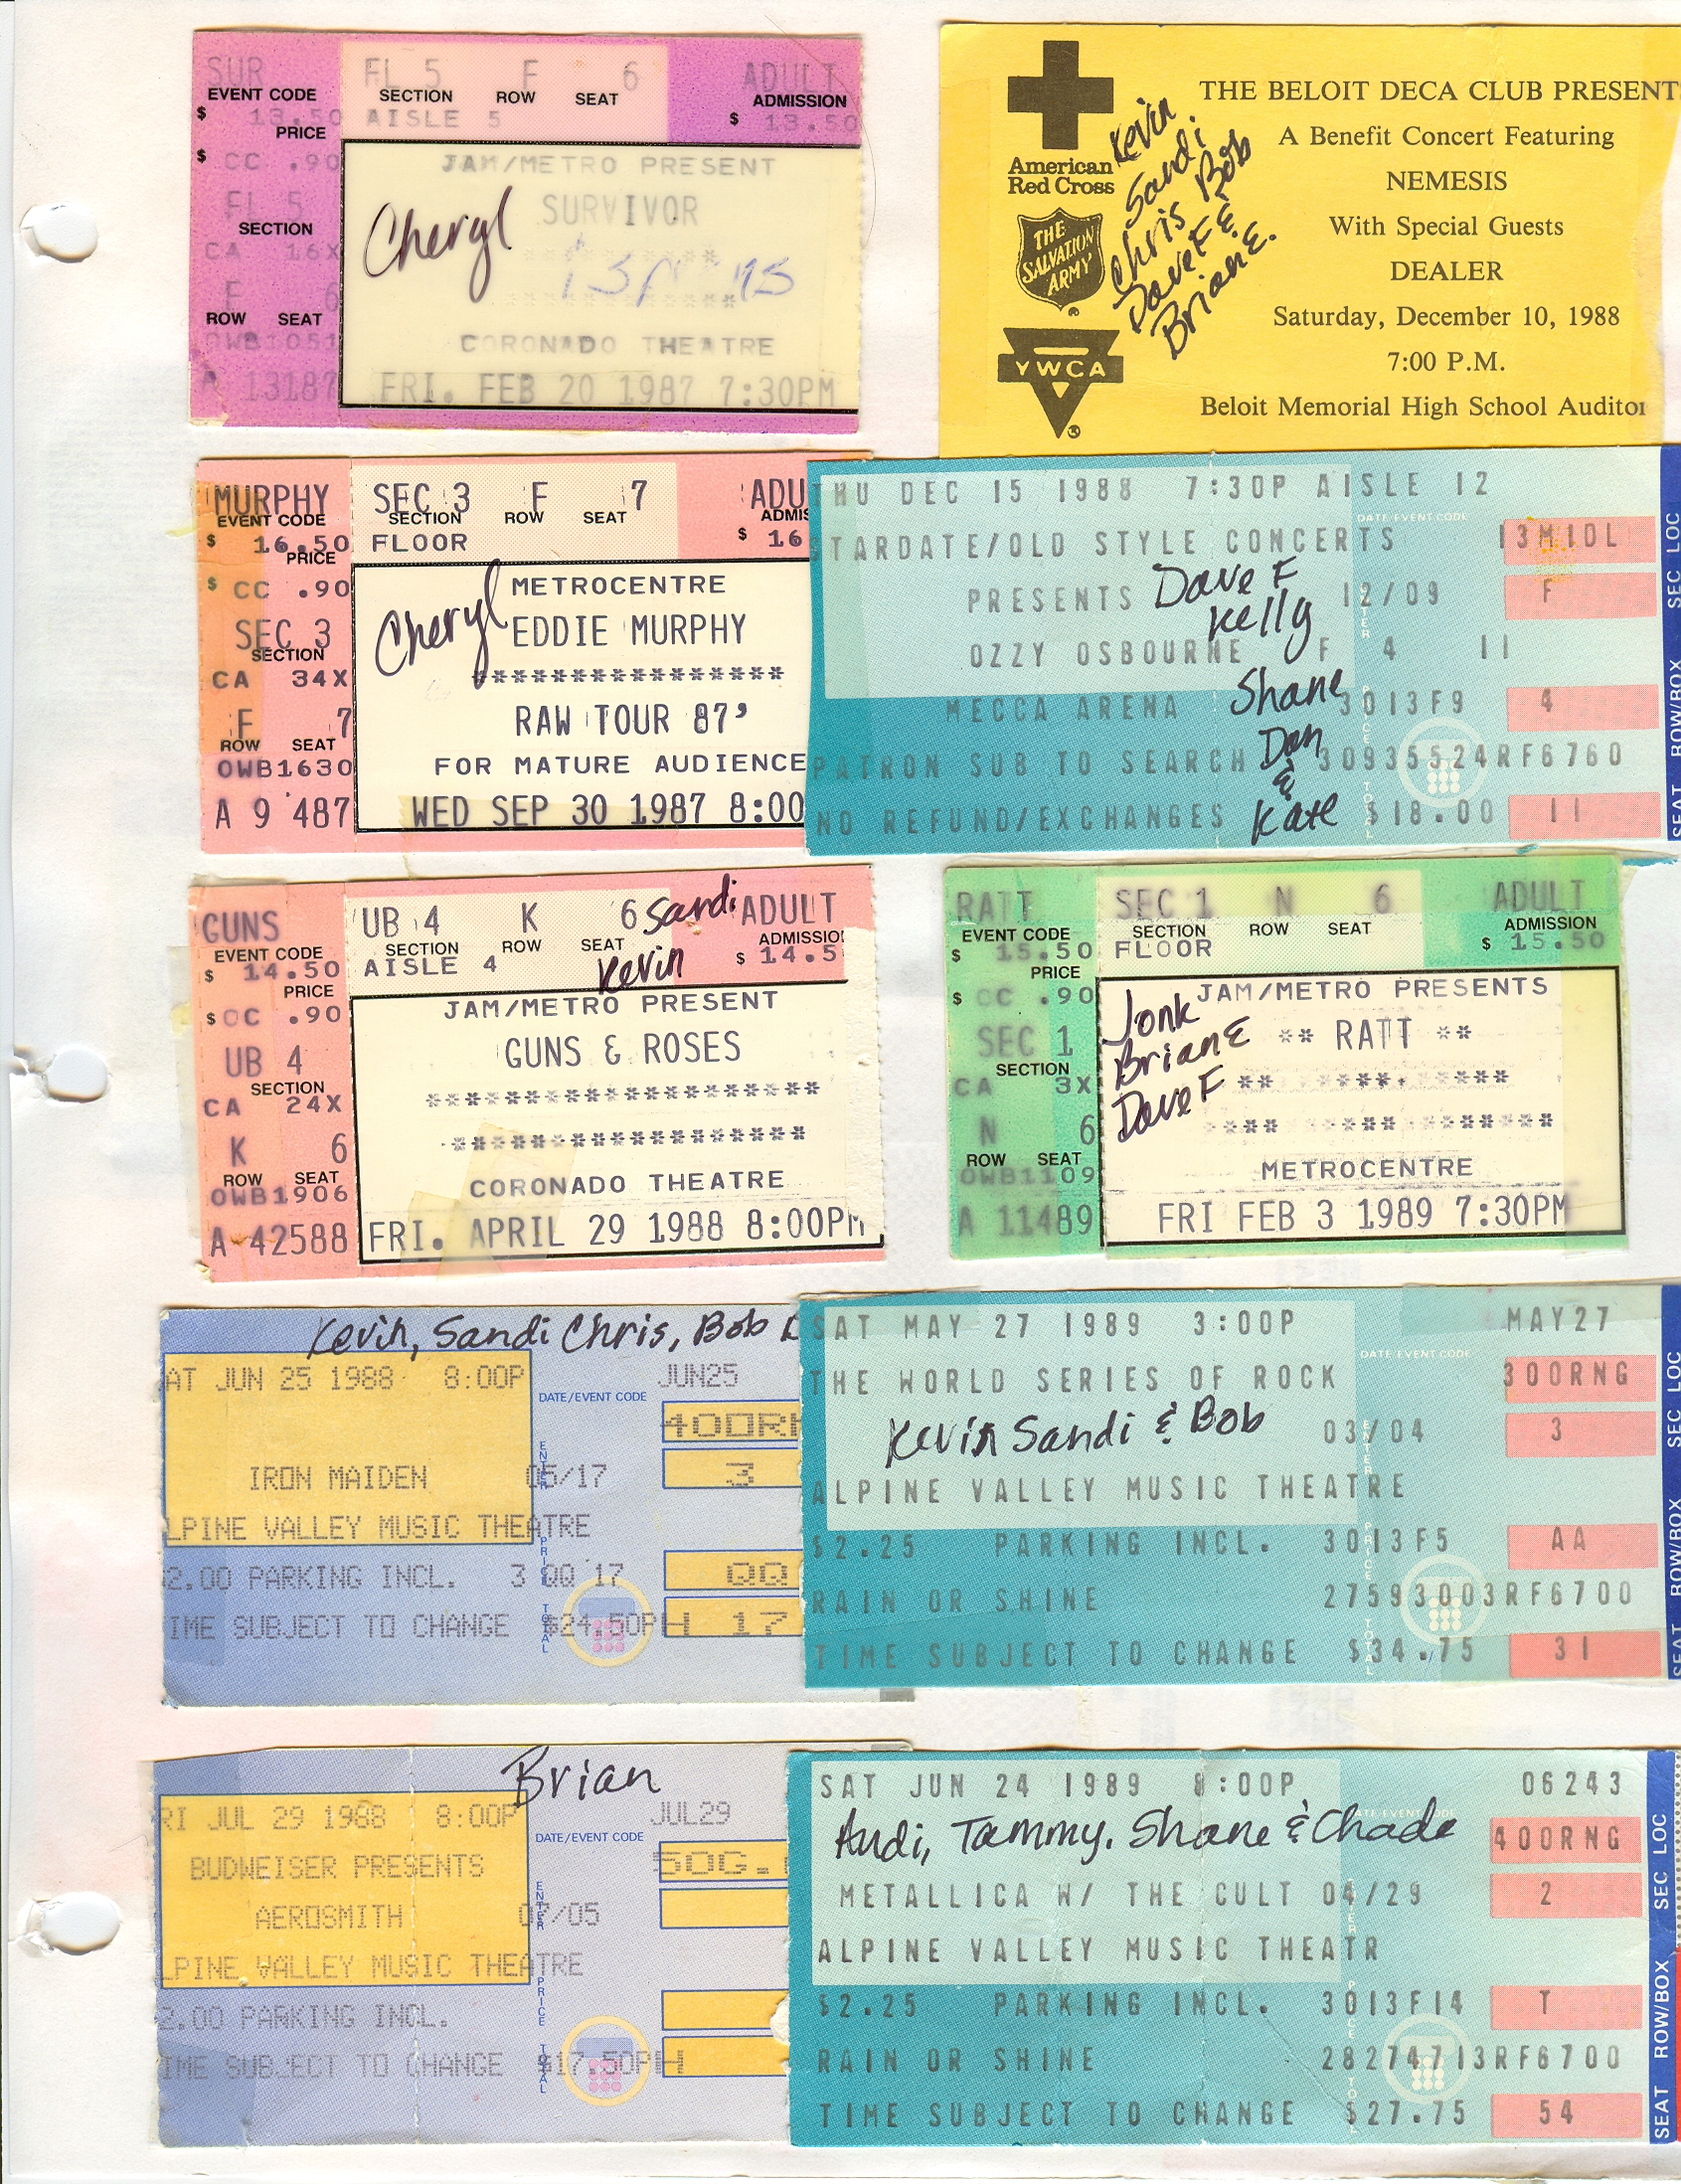 SUR FL 5 F 6 ADULT
EVENT CODE SECTION ROW SEAT ADMISSION
$ 13.50 AISLE 5 $ 13.50
PRICE
$ CC .90 JAM/METRO PRESENT
FL 5 Cheryl SURVIVOR
SECTION
CA 16X
F 6
ROW SEAT
OWB1051 CORONADO THEATRE
A 13187 FRI. FEB 20 1987 7:30PM
THE BELOIT DECA CLUB PRESENT
A Benefit Concert Featuring
NEMESIS
With Special Guests
DEALER
Saturday, December 10, 1988
7:00 P.M.
Beloit Memorial High School Auditor
American
Red Cross
THE
SALVATION
ARMY
YWCA
Kevin
Sandi
Chris Bob
Dave F &
Brian E.
MURPHY SEC 3 F 7 ADU
EVENT CODE SECTION ROW SEAT ADMIS
$ 16.50 FLOOR $ 16
PRICE
$ CC .90 METROCENTRE
SEC 3 Cheryl EDDIE MURPHY
SECTION
CA 34X ****************
F 7 RAW TOUR 87'
ROW SEAT
OWB1630 FOR MATURE AUDIENCE
A 9 487 WED SEP 30 1987 8:00
THU DEC 15 1988 7:30P AISLE 12
DATE/EVENT CODE
STARDATE/OLD STYLE CONCERTS 13MIDL
PRESENTS 12/09 F
OZZY OSBOURNE F 4 11
MECCA ARENA 3013F9 4
PATRON SUB TO SEARCH 30935524RF6760
NO REFUND/EXCHANGES $18.00 11
Dave F
Kelly
Shane
Dan
&
Kate
SEAT ROW/BOX SEC LOC
GUNS UB 4 K 6 ADULT
EVENT CODE SECTION ROW SEAT ADMISSIO
$ 14.50 AISLE 4 $ 14.5
Sandi
Kevin
PRICE
$ OC .90 JAM/METRO PRESENT
UB 4 GUNS & ROSES
SECTION
CA 24X ********************
K 6 ******************
ROW SEAT
OWB1906 CORONADO THEATRE
A 42588 FRI. APRIL 29 1988 8:00PM
RATT SEC 1 N 6 ADULT
EVENT CODE SECTION ROW SEAT ADMISSION
$ 15.50 FLOOR $ 15.50
PRICE
$ CC .90 JAM/METRO PRESENTS
SEC 1 ** RATT **
SECTION
CA 3X
N 6
ROW SEAT
OWB1109 METROCENTRE
A 11489 FRI FEB 3 1989 7:30PM
Jonk
Brian E
Dave F
Kevin, Sandi Chris, Bob
AT JUN 25 1988 8:00P JUN25
DATE/EVENT CODE
400R
IRON MAIDEN 05/17 3
LPINE VALLEY MUSIC THEATRE
2.00 PARKING INCL. 3 QQ 17 QQ
IME SUBJECT TO CHANGE $24.50PH 17
ENTER
PRICE
TOTAL
SAT MAY 27 1989 3:00P MAY27
DATE/EVENT CODE
THE WORLD SERIES OF ROCK 300RNG
Kevin Sandi & Bob 03/04 3
ALPINE VALLEY MUSIC THEATRE
$2.25 PARKING INCL. 3013F5 AA
RAIN OR SHINE 27593003RF6700
TIME SUBJECT TO CHANGE $34.75 31
SEAT ROW/BOX SEC LOC
Brian
RI JUL 29 1988 8:00P JUL29
DATE/EVENT CODE
BUDWEISER PRESENTS 50G.
AEROSMITH 07/05
LPINE VALLEY MUSIC THEATRE
2.00 PARKING INCL.
IME SUBJECT TO CHANGE $17.50PH
ENTER
PRICE
TOTAL
SAT JUN 24 1989 8:00P 06243
Andi, Tammy, Shane & Chade 400RNG
METALLICA W/ THE CULT 04/29 2
ALPINE VALLEY MUSIC THEATR
$2.25 PARKING INCL. 3013F14 T
RAIN OR SHINE 28274713RF6700
TIME SUBJECT TO CHANGE $27.75 54
SEAT ROW/BOX SEC LOC